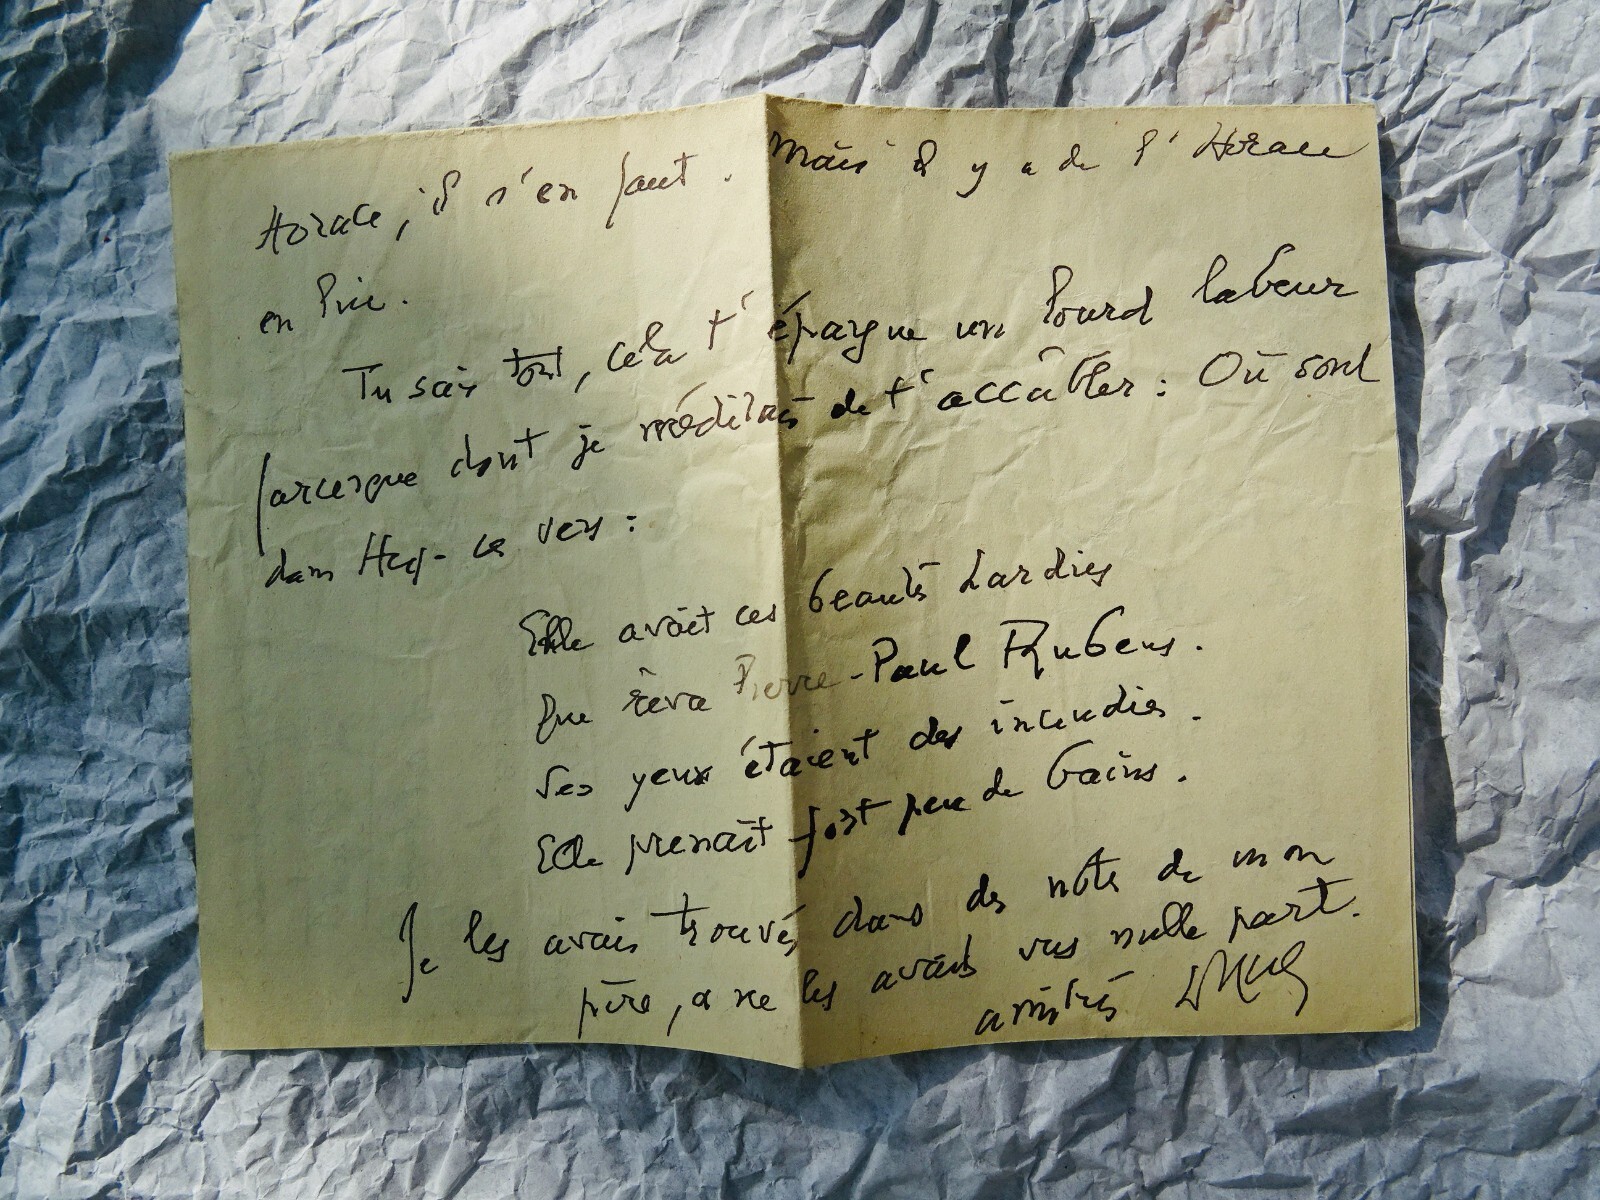 Horace, il s'en faut. Mais il y a de l'Horace
en lui.
Tu sais tout, cela t'épargne un lourd labeur
farcesque dont je méditais de t'accabler : Où sont
dans Hugo ces vers :
Elle avait ces beautés hardies
Que rêva Pierre-Paul Rubens.
Ses yeux étaient des incendies.
Elle prenait fort peu de bains.
Je les avais trouvés dans des notes de mon
père, et ne les avais vus nulle part.
amitiés